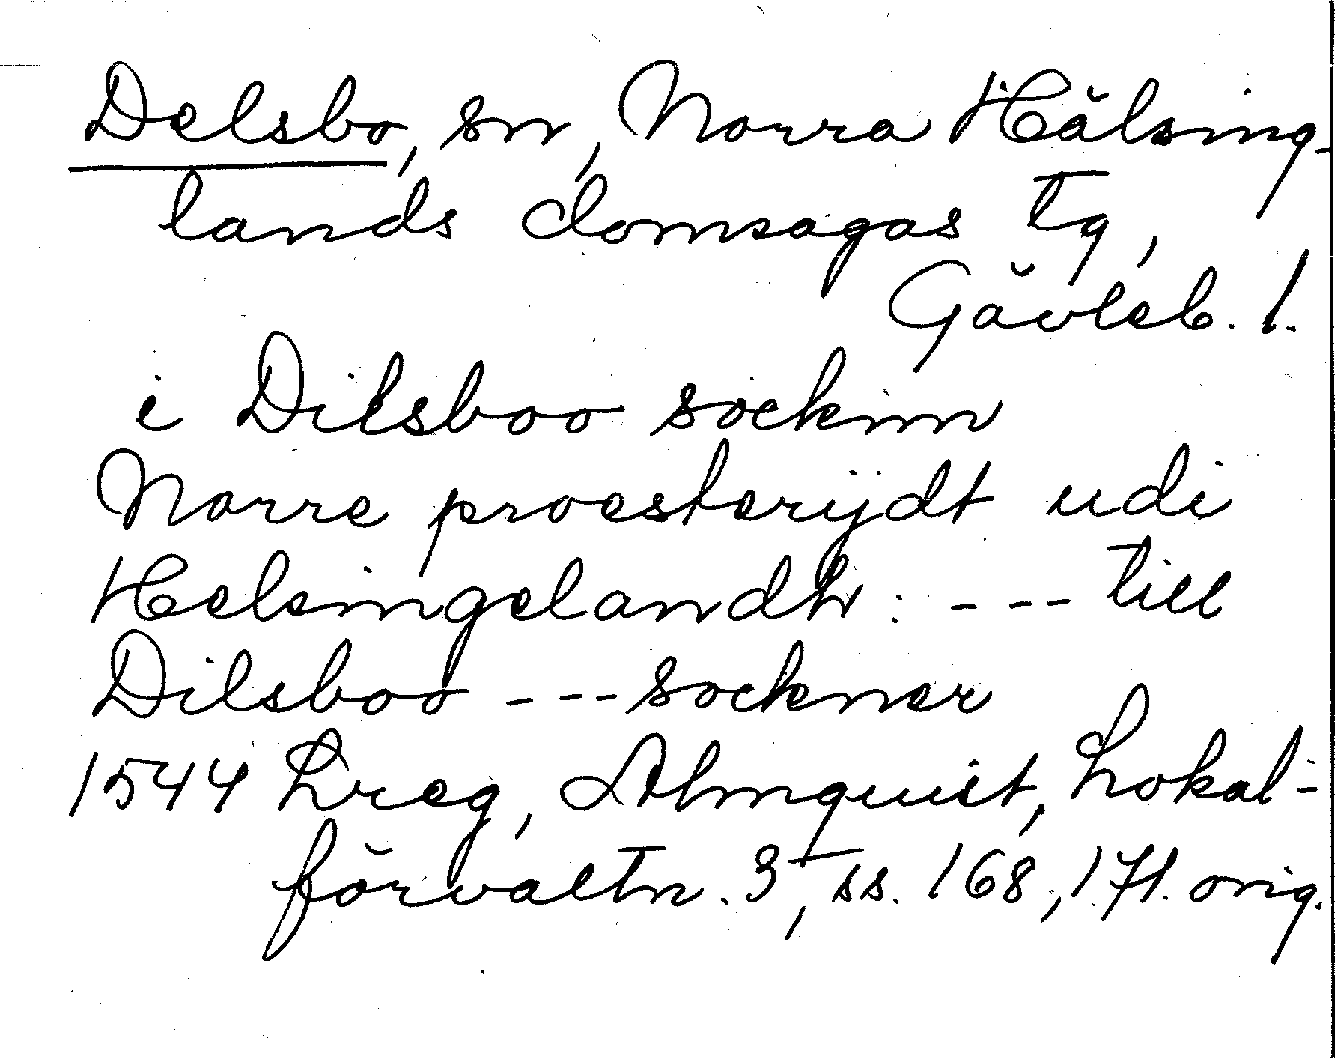 Delsbo, sn, Norra Hälsing-
lands domsagas tg,
Gävleb. l.
i Dilsboo socknn
Norre proesterijdt udi
Helsingelandh: --- till
Dilsboo --- sockner
1544 Lreg, Almquist, Lokal-
förvaltn. 3, ss. 168, 171. orig.